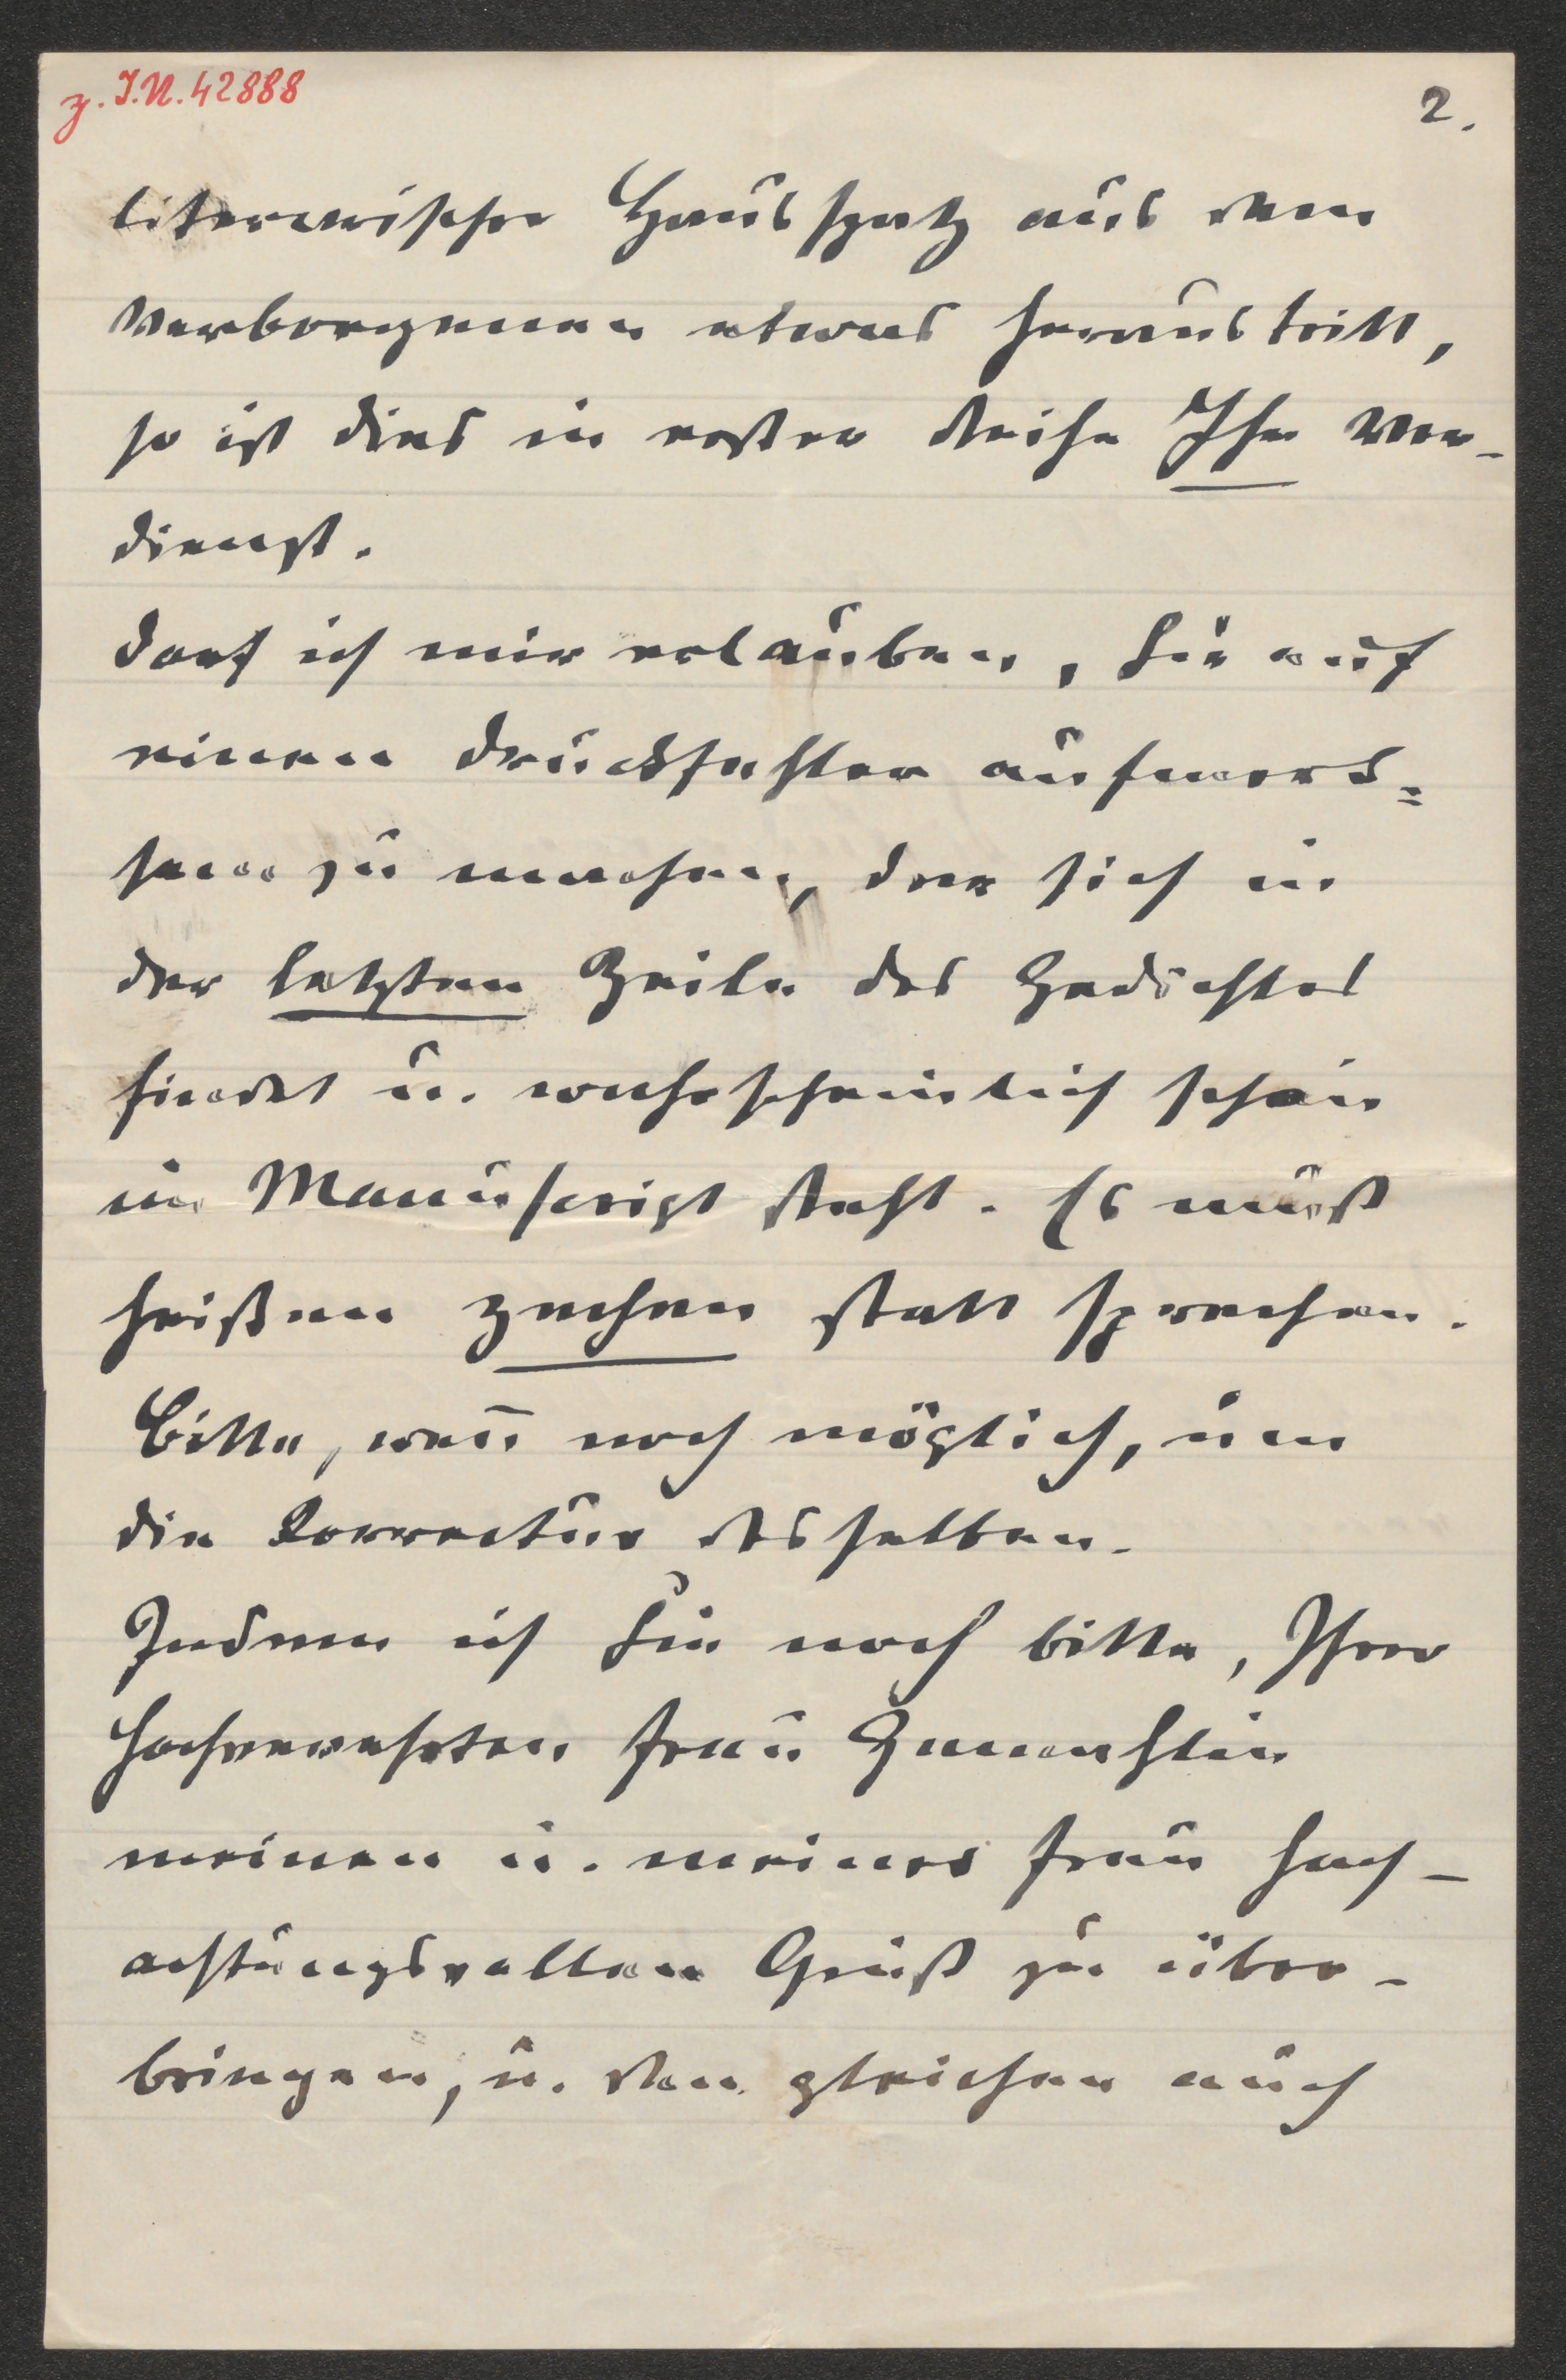 z. I.N. 42888
2.
literarischer Hausspatz aus dem
Verborgenen etwas heraustritt,
so ist dies in erster Reihe Ihr Ver-
dienst.
Darf ich mir erlauben, Sie auf
einen Druckfehler aufmerk=
sam zu machen, der sich in
der letzten Zeile des Gedichtes
findet u. wahrscheinlich schon
im Manuscript steht. Es muß
heißen zechen statt sprechen.
Bitte, wen̄ noch möglich, um
die Correctur desselben.
Indem ich Sie noch bitte, Ihrer
hochverehrten Frau Gemahlin
meinen u. meiner Frau hoch-
achtungsvollen Gruß zu über-
bringen, u. den gleichen auch